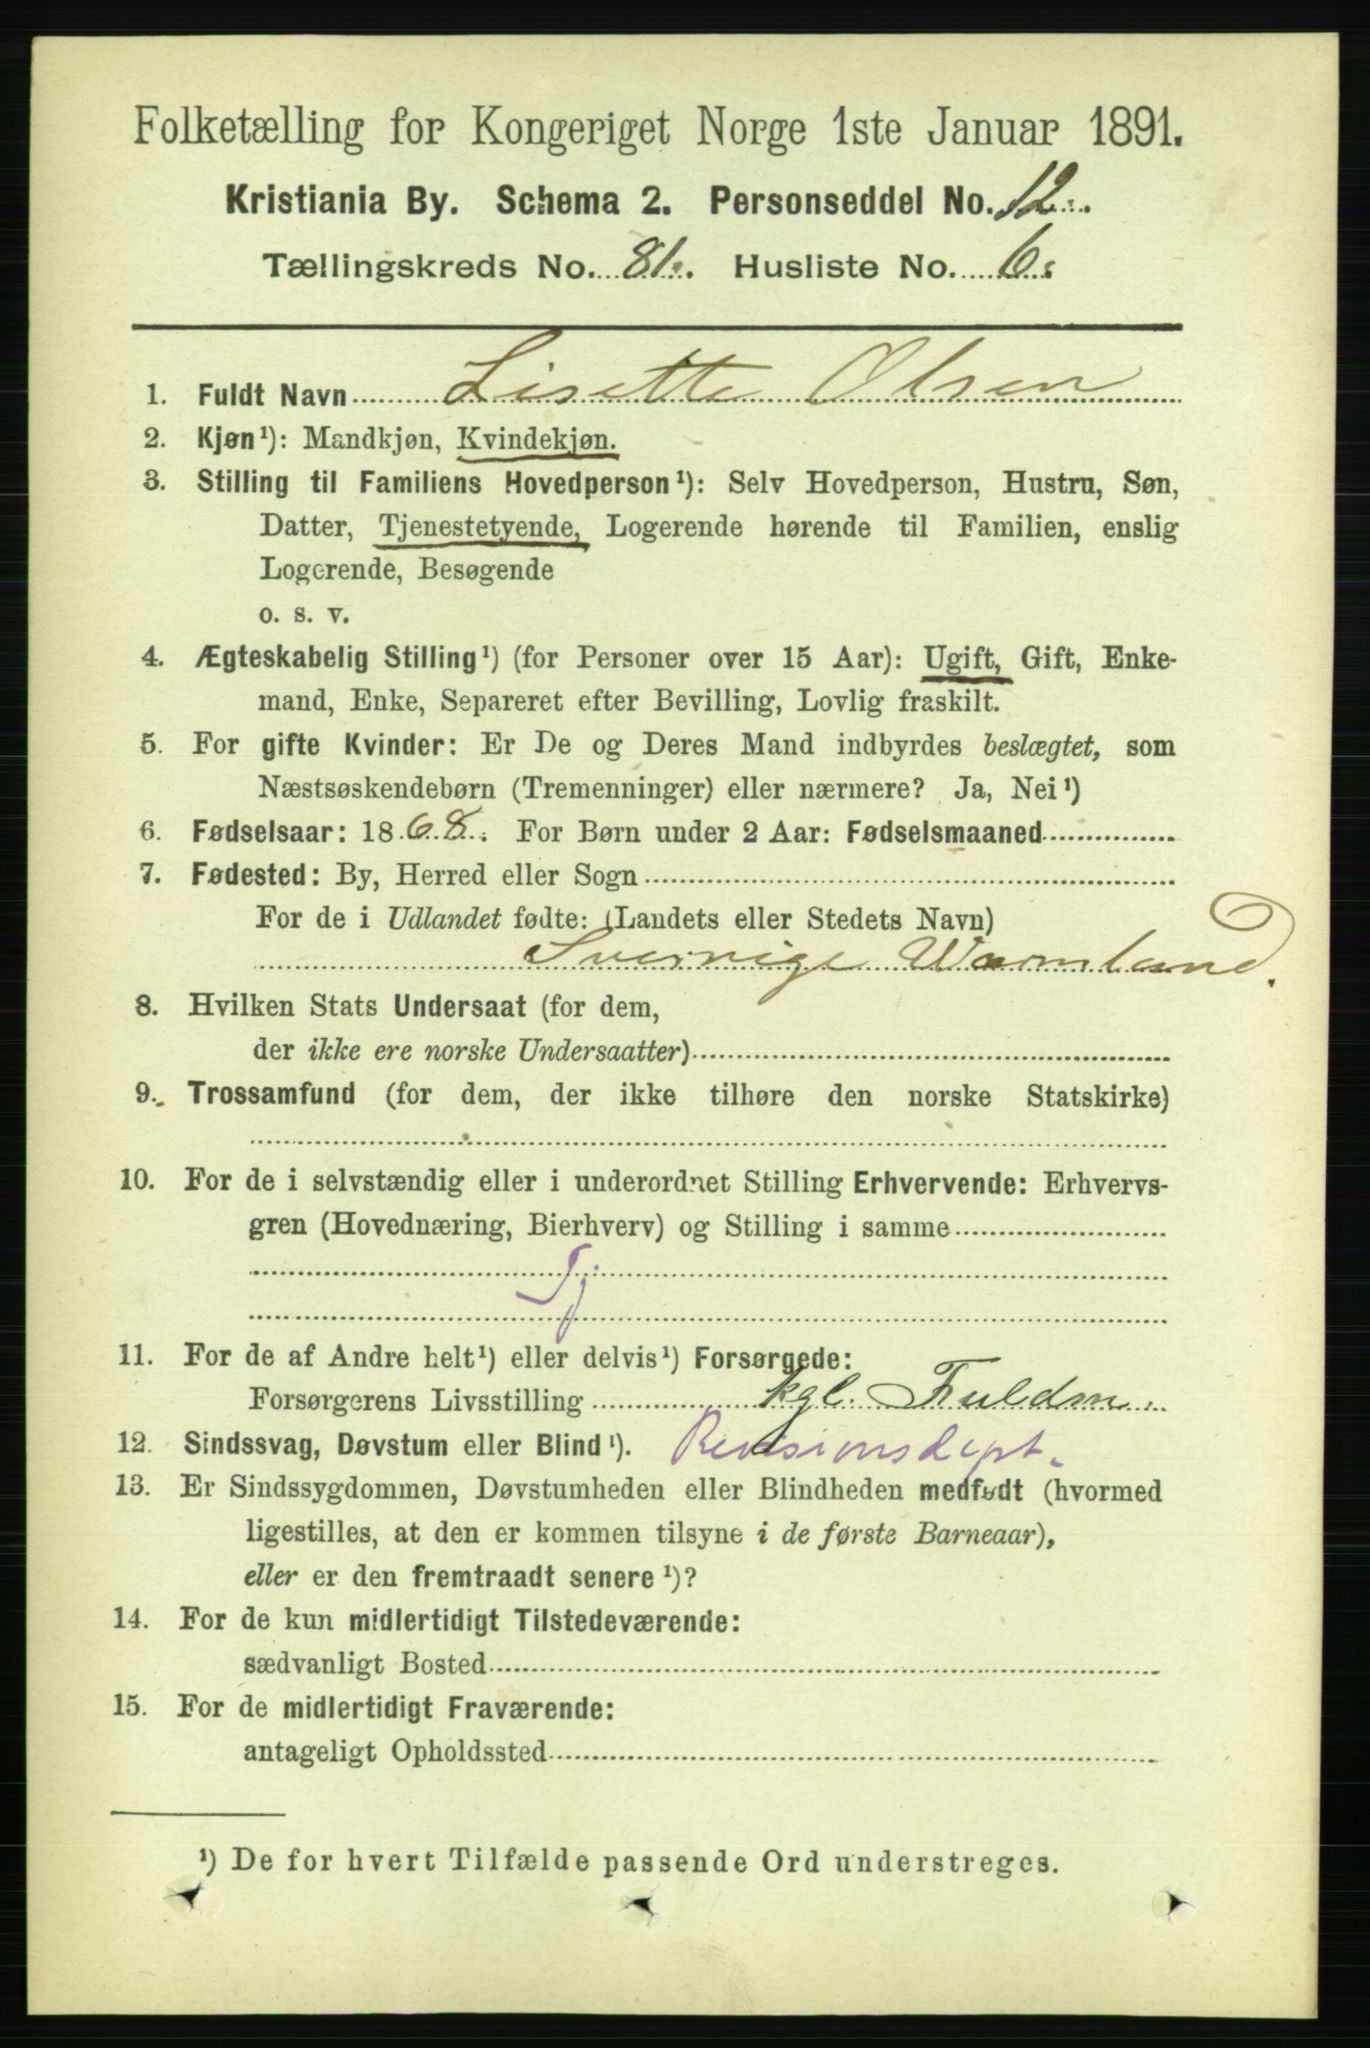 Folketælling for Kongeriget Norge 1ste Januar 1891.
Kristiania By. Schema 2. Personseddel No. 12.
Tællingskreds No. 81. Husliste No. 6.
1. Fuldt Navn Lisette Olsen
2. Kjøn¹): Mandkjøn, Kvindekjøn.
3. Stilling til Familiens Hovedperson¹): Selv Hovedperson, Hustru, Søn,
Datter, Tjenestetyende, Logerende hørende til Familien, enslig
Logerende, Besøgende
o. s. v.
4. Ægteskabelig Stilling¹) (for Personer over 15 Aar): Ugift, Gift, Enke-
mand, Enke, Separeret efter Bevilling, Lovlig fraskilt.
5. For gifte Kvinder: Er De og Deres Mand indbyrdes beslægtet, som
Næstsøskendebørn (Tremenninger) eller nærmere? Ja, Nei¹)
6. Fødselsaar: 1868. For Børn under 2 Aar: Fødselsmaaned
7. Fødested: By, Herred eller Sogn
For de i Udlandet fødte: (Landets eller Stedets Navn)
Sverrige Warmland.
8. Hvilken Stats Undersaat (for dem,
der ikke ere norske Undersaatter)
9. Trossamfund (for dem, der ikke tilhøre den norske Statskirke)
10. For de i selvstændig eller i underordnet Stilling Erhvervende: Erhvervs-
gren (Hovednæring, Bierhverv) og Stilling i samme
Tj
11. For de af Andre helt¹) eller delvis¹) Forsørgede:
Forsørgerens Livsstilling kgl. Fuldm.
12. Sindssvag, Døvstum eller Blind¹). Revisionsdept.
13. Er Sindssygdommen, Døvstumheden eller Blindheden medfødt (hvormed
ligestilles, at den er kommen tilsyne i de første Barneaar),
eller er den fremtraadt senere¹)?
14. For de kun midlertidigt Tilstedeværende:
sædvanligt Bosted
15. For de midlertidigt Fraværende:
antageligt Opholdssted
¹) De for hvert Tilfælde passende Ord understreges.